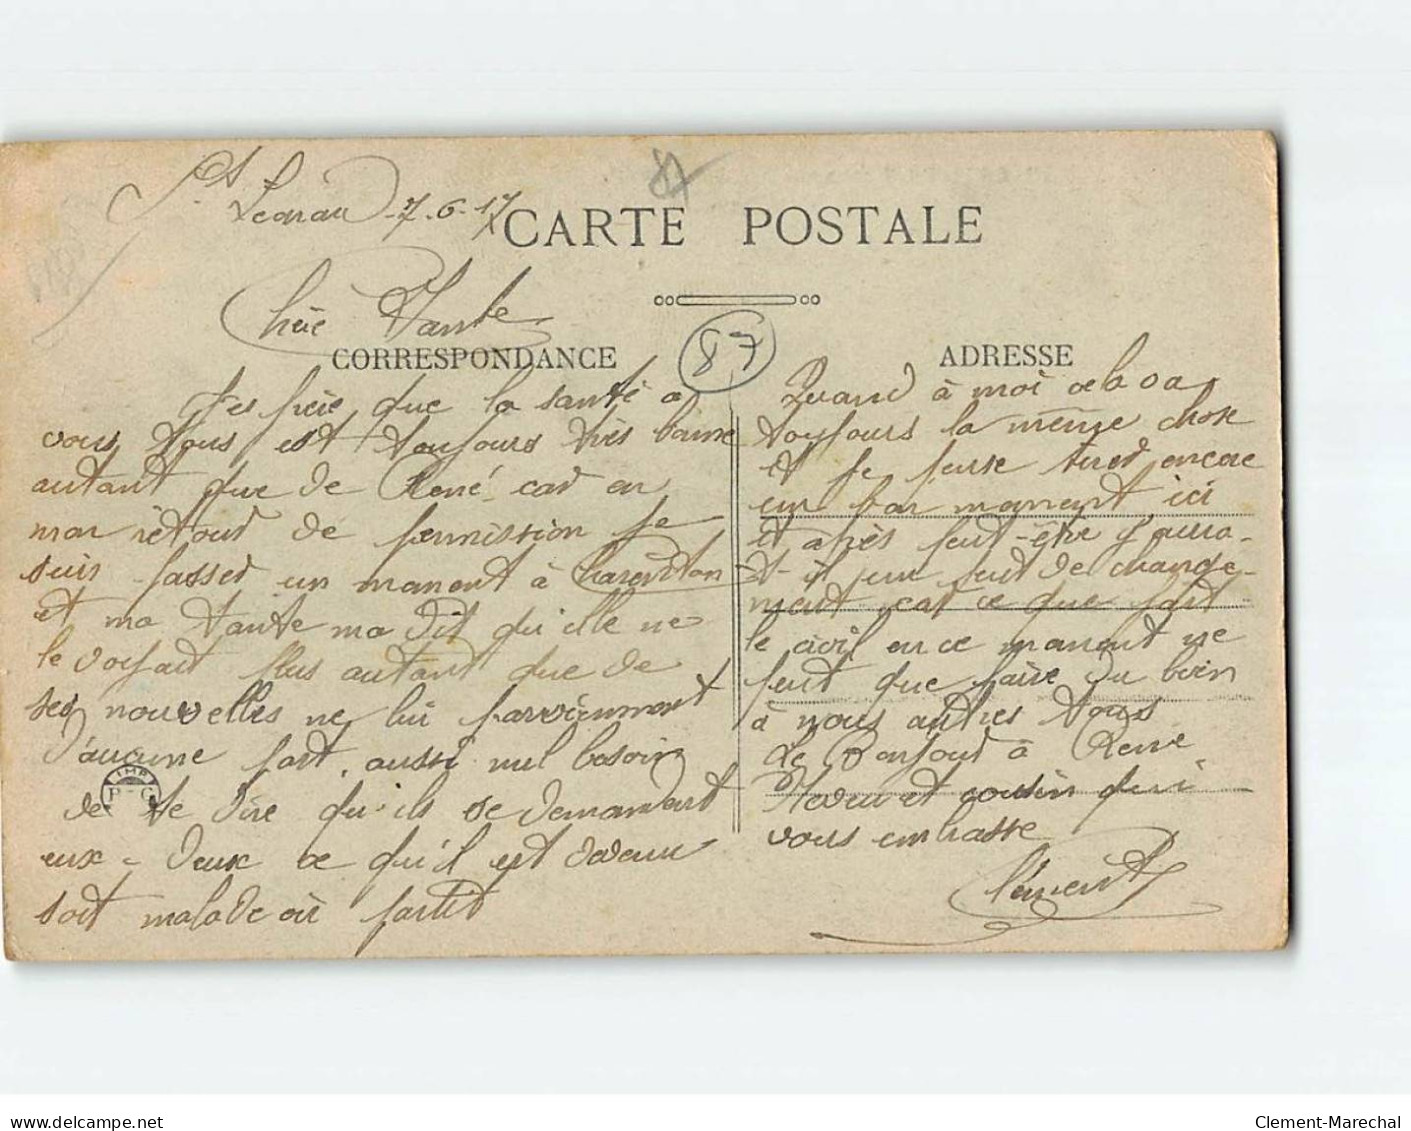 St Léonard 7-6-17
CARTE POSTALE
Chère Tante
87
CORRESPONDANCE
J'espère que la santé a
vous tous est toujours très bonne
autant que de René car en
mon retour de permission je
suis passer un moment à Charenton
et ma Tante ma dit qu'elle ne
le voyait plus autant que de
ses nouvelles ne lui parviennent
d'aucune part, aussi nul besoin
de te dire qu'ils se demandent
eux-deux ce qu'il est devenu
soit malade où partit
ADRESSE
Quand à moi cela va
toujours la même chose
et je pense tirer encore
un bon moment ici
et après peut-être y aura-
t-il un peut de change-
ment car ce que fait
le civil en ce moment ne
peut que faire du bien
à nous autres tous
Le Bonjour à René
Neveu et cousin qui
vous embrasse
Clément
IMP